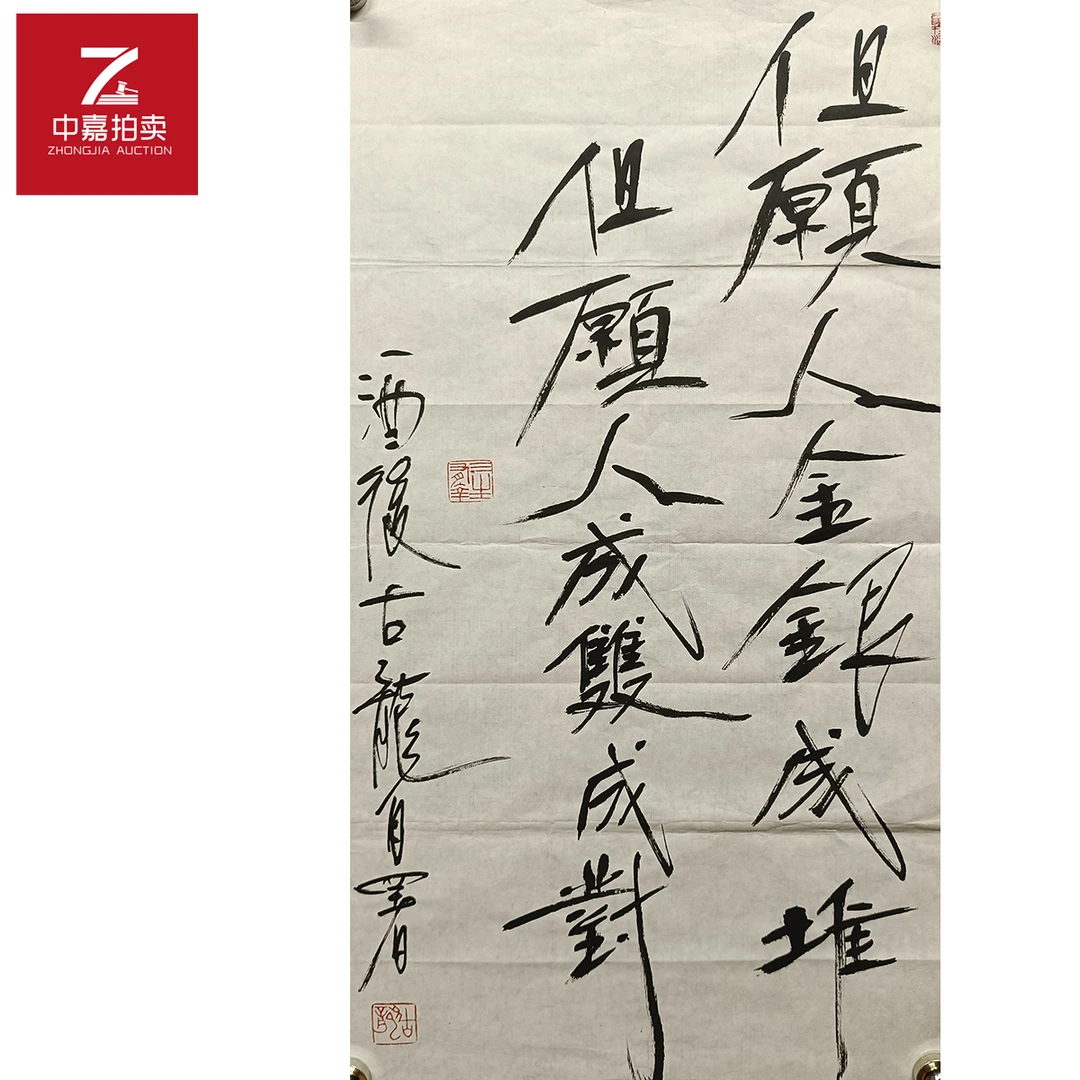 中嘉拍卖
ZHONGJIA AUCTION
但願人金銀成堆
但願人成雙成對
酒後古龍自署